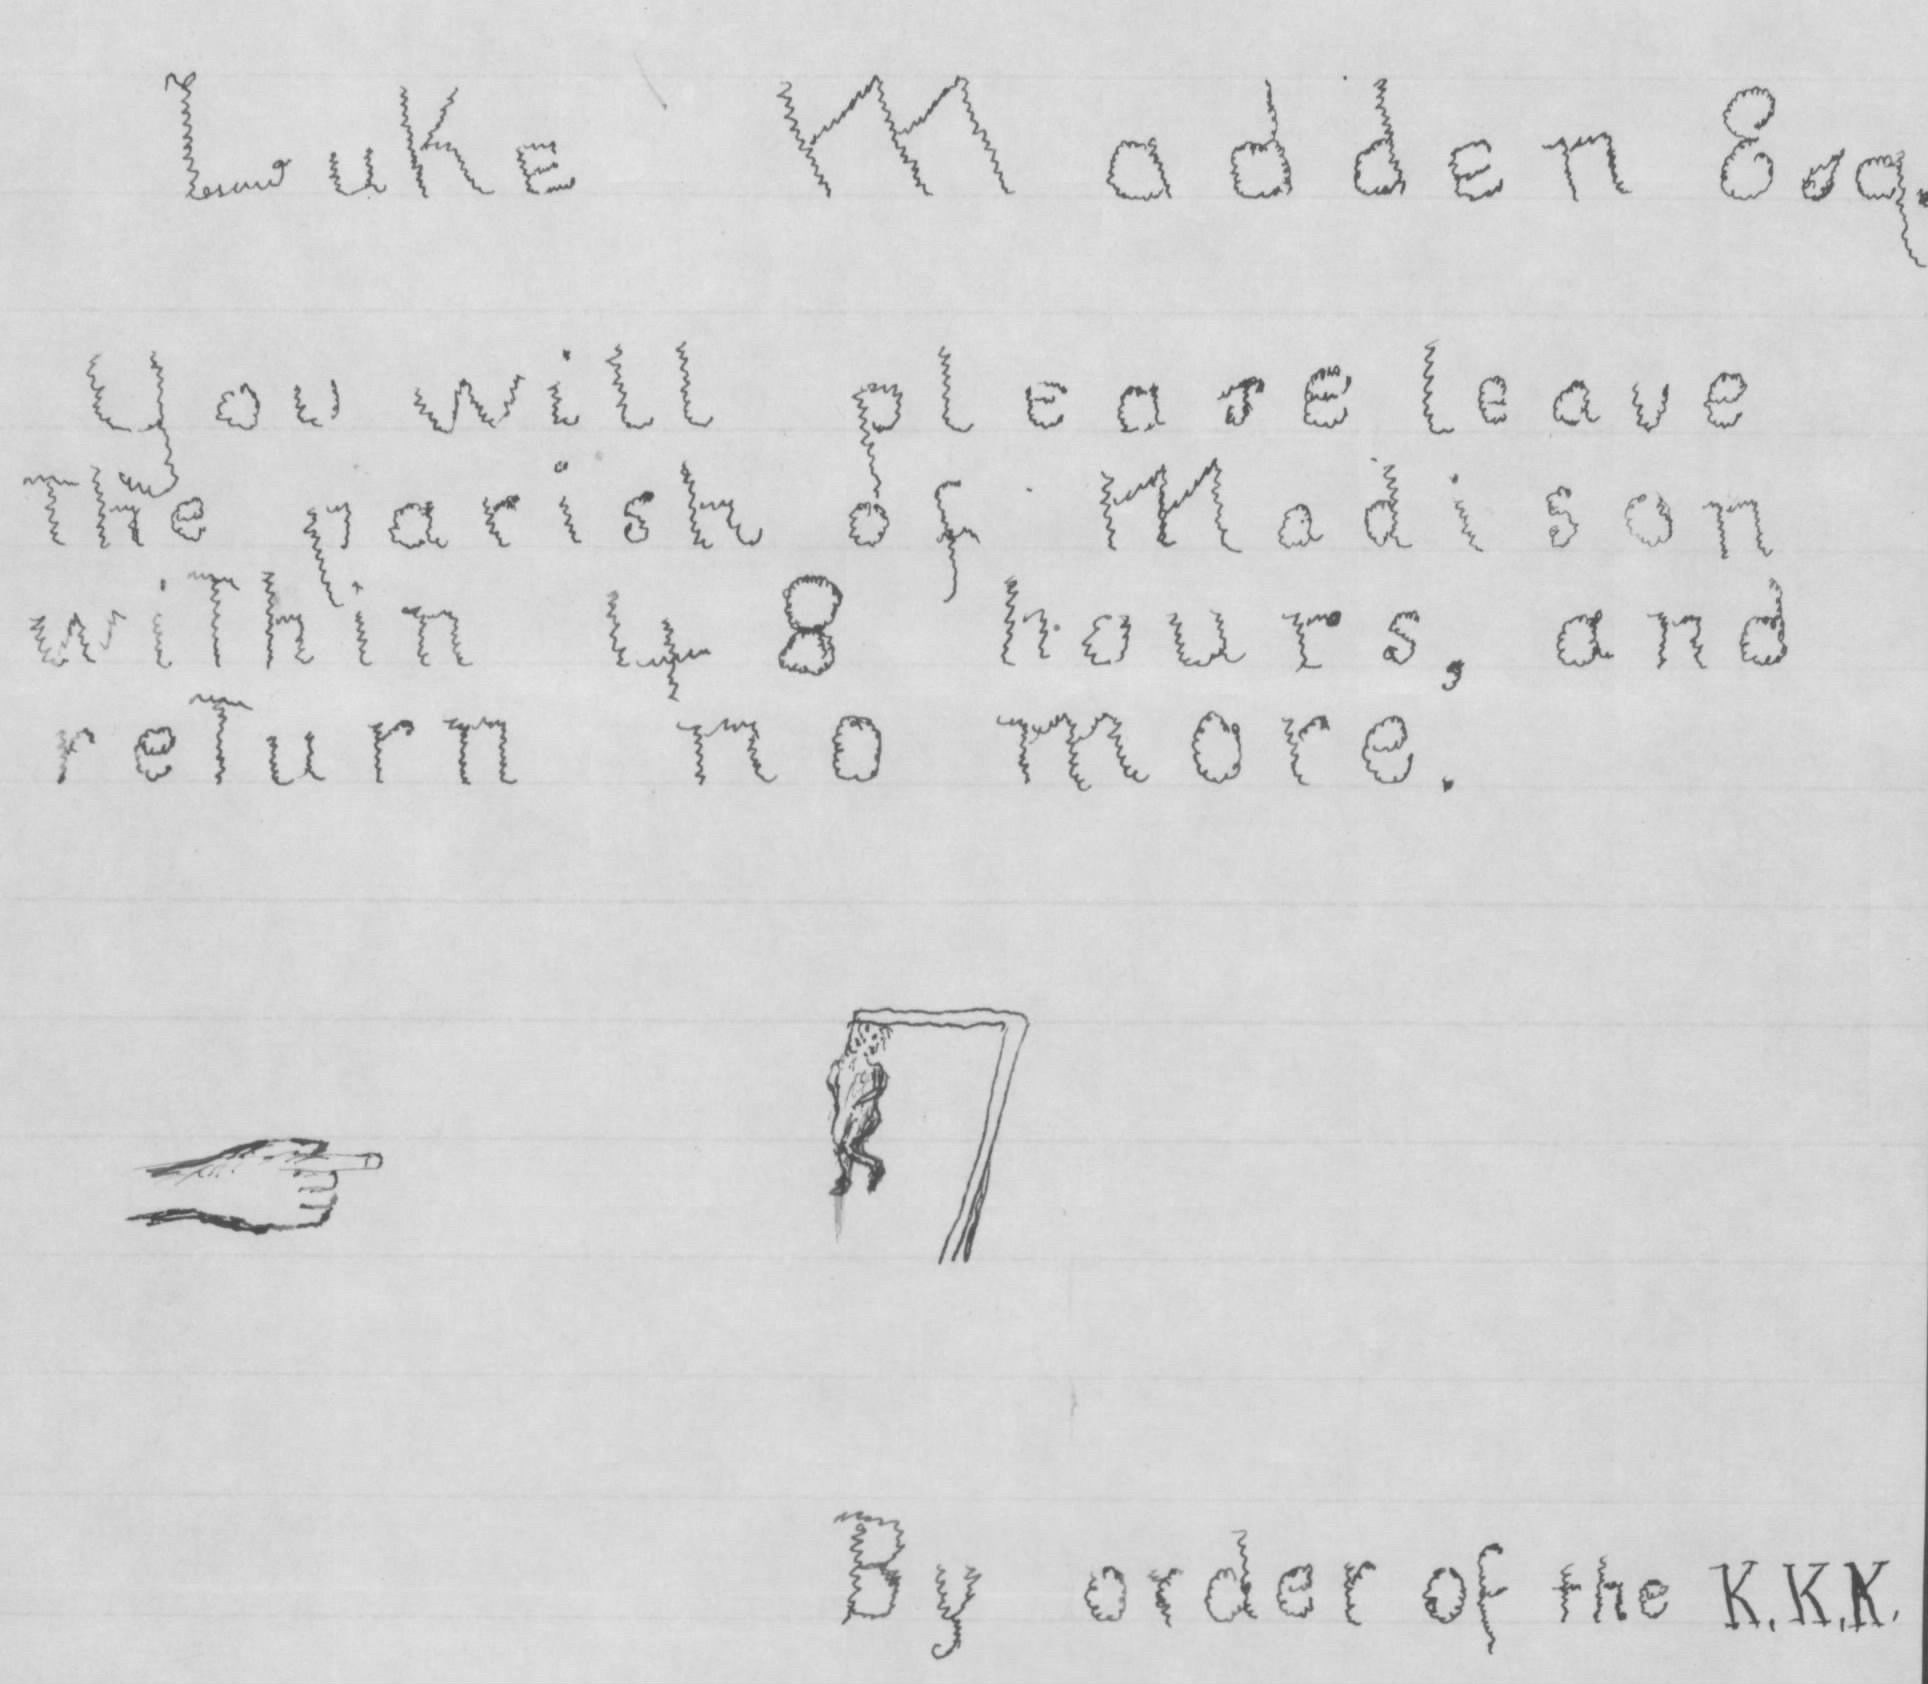 Luke Madden Esq.
You will please leave
The parish of Madison
wiThin 48 hours, and
reTurn no more.
By order of the K.K.K.